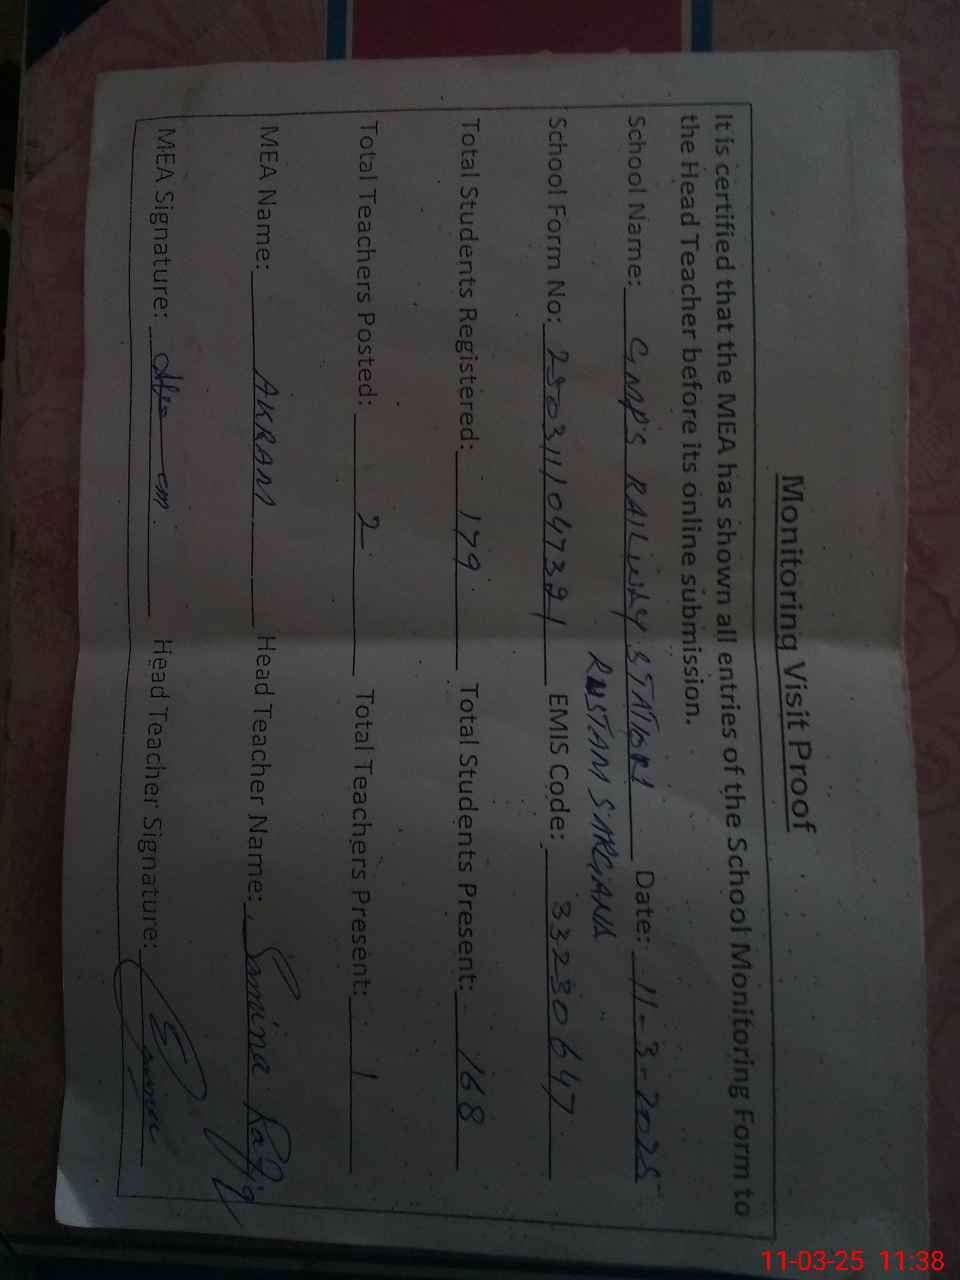 Monitoring Visit Proof
It is certified that the MEA has shown all entries of the School Monitoring Form to
the Head Teacher before its online submission.
School Name: GMPS RAILWAY STATION Date: 11-3-2025
RUSTAM SARGANA
School Form No: EMIS Code: 33230647
Total Students Registered: 179 Total Students Present: 168
Total Teachers Posted: 2 Total Teachers Present: 1
MEA Name: AKRAM Head Teacher Name: Samina Rafiq
MEA Signature: Head Teacher Signature:
11-03-25 11:38